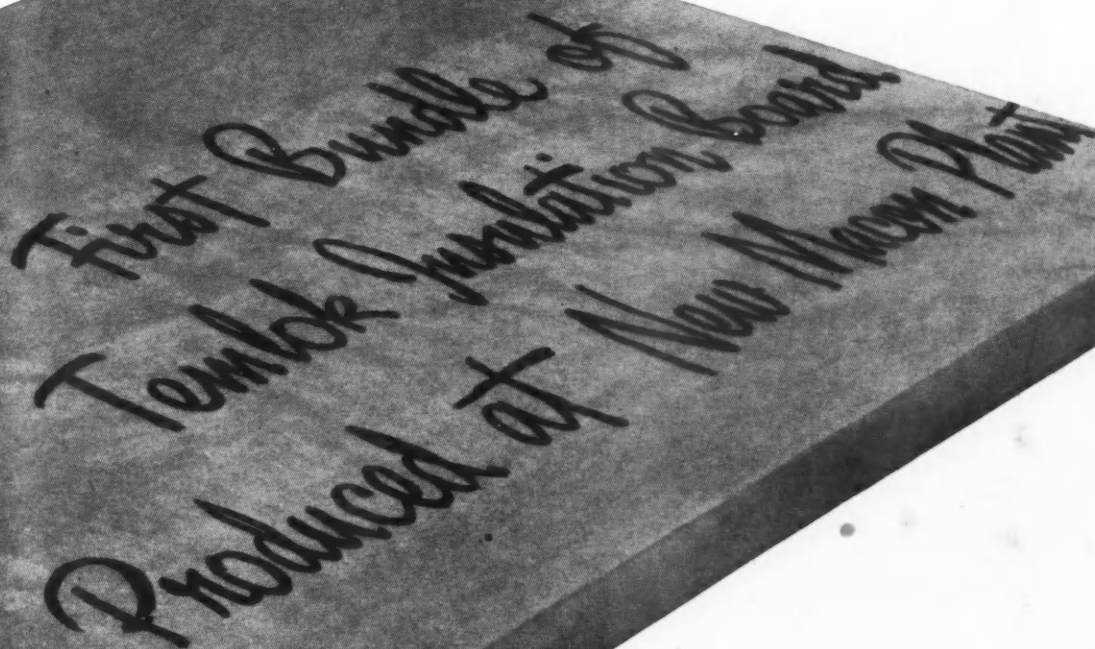 First Bundle of
Temlok Insulation Board
Produced at New Macon Plant